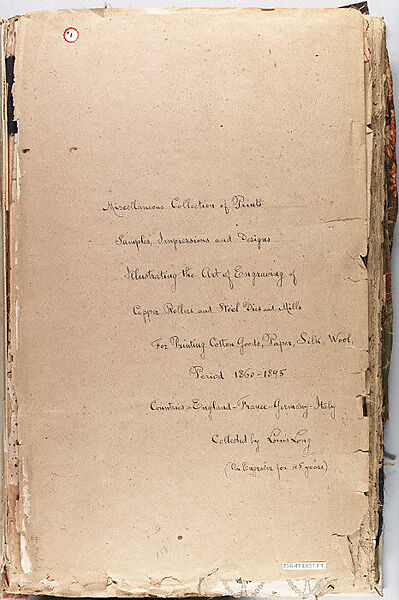 Miscellaneous Collection of Prints
Samples, Impressions and Designs
Illustrating the Art of Engraving of
Copper Rollers and Steel Dies and Mills
For Printing Cotton Goods, Paper, Silk, Wool,
Period 1860-1895
Countries - England - France - Germany - Italy
Collected by Louis Long
(An Engraver for 45 years)
156.41 L851 F1